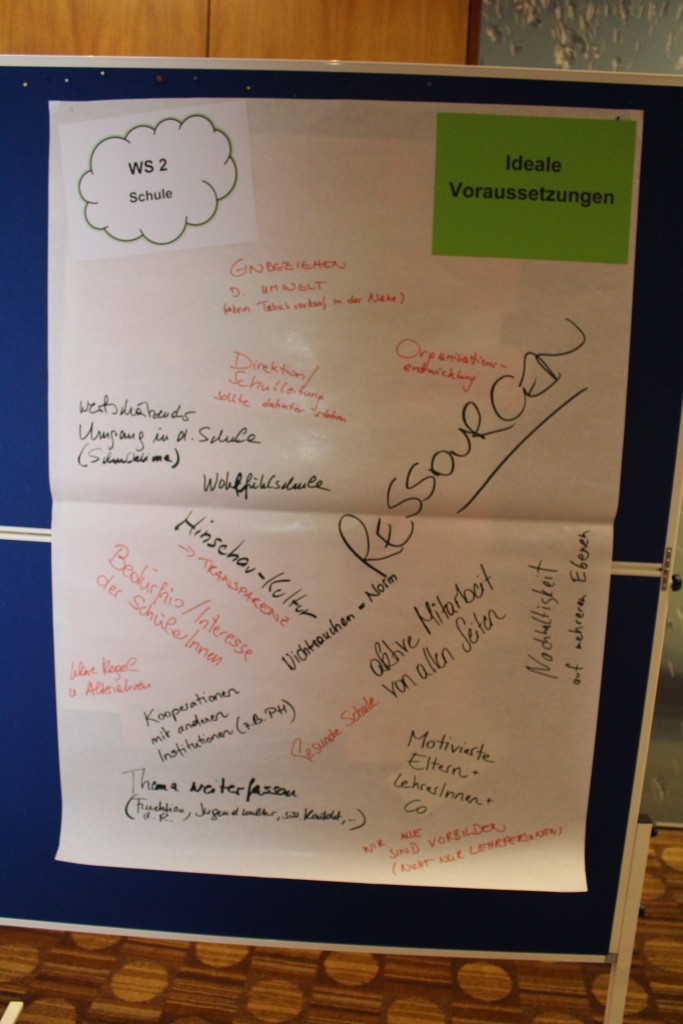 WS 2
Schule
Ideale
Voraussetzungen
EINBEZIEHEN
D. UMWELT
(kein Tabakverkauf in der Nähe)
Direktion/
Schulleitung
sollte dahinter stehen
Organisations-
entwicklung
wertschätzender
Umgang in d. Schule
(Schulklima)
Wohlfühlschule
RESSOURCEN
Hinschau-Kultur
→ TRANSPARENZ
Bedürfnis/Interesse
der SchülerInnen
Nichtrauchen = Norm
aktive Mitarbeit
von allen Seiten
Nachhaltigkeit
auf mehreren Ebenen
klare Regel
u. Alternativen
Kooperationen
mit anderen
Institutionen (z.B. PH)
Gesunde Schule
Motivierte
Eltern +
LehrerInnen +
Co.
Thema weiterfassen
(Funktion, Jugendkultur, soz. Kontakt, ...)
d. R.
WIR ALLE
SIND VORBILDER
(NICHT NUR LEHRPERSONEN)